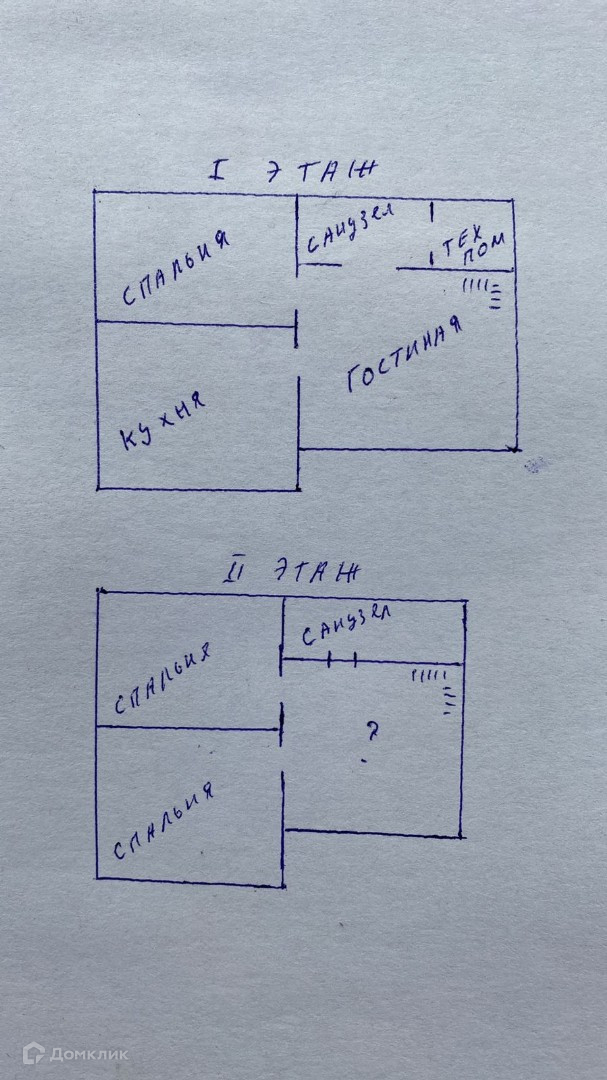 I ЭТАЖ
СПАЛЬНЯ
САНУЗЕЛ
ТЕХ
ПОМ
ГОСТИНАЯ
КУХНЯ
II ЭТАЖ
СПАЛЬНЯ
САНУЗЕЛ
?
СПАЛЬНЯ
Домклик